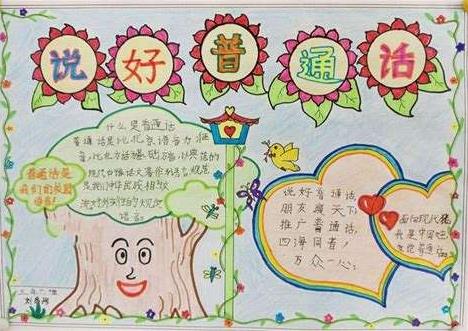 说好普通话
什么是普通话
普通话是以北京语音为准
音,以北方话基础方言,以典范的
现代白话文著作为语法规范
是我们中华民族相互
普通话是
我们的校园
语言!
说好普通话
朋友遍天下
推广普通话,
四海同音!
万众一心;
面向现代
我是中国